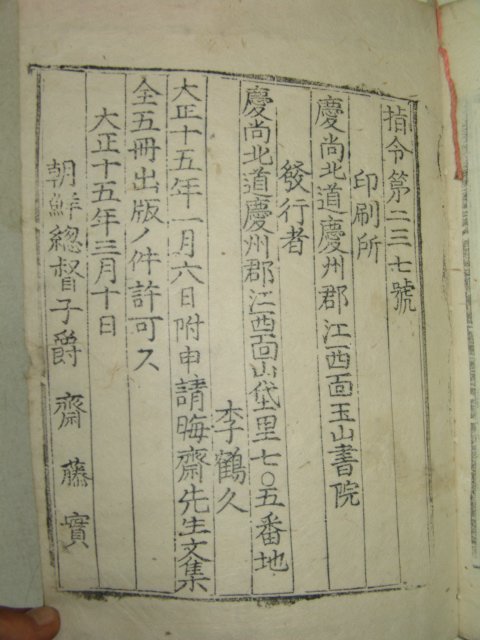 指令第二三七號
印刷所
慶尚北道慶州郡江西面玉山書院
發行者
慶尚北道慶州郡江西面山岱里七〇五番地
李鶴久
大正十五年一月六日附申請晦齋先生文集
全五冊出版ノ件許可ス
大正十五年三月十日
朝鮮總督子爵齋藤實